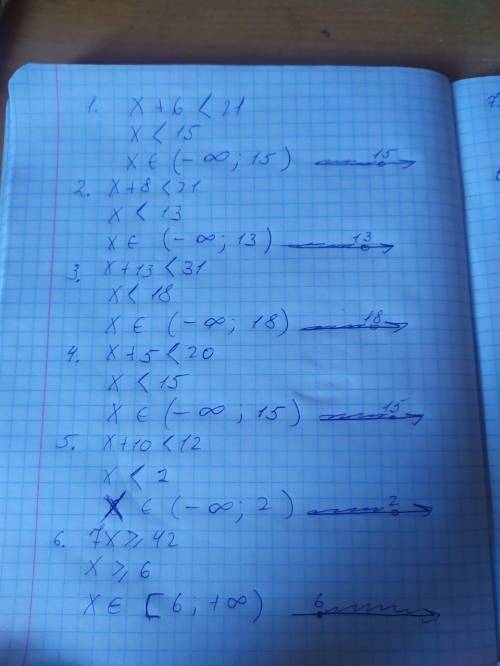 1. x + 6 < 21
x < 15
x ∈ (-∞; 15) 15
2. x + 8 < 21
x < 13
x ∈ (-∞; 13) 13
3. x + 13 < 31
x < 18
x ∈ (-∞; 18) 18
4. x + 5 < 20
x < 15
x ∈ (-∞; 15) 15
5. x + 10 < 12
x < 2
x ∈ (-∞; 2) 2
6. 7x ⩾ 42
x ⩾ 6
x ∈ [6; +∞) 6
7.